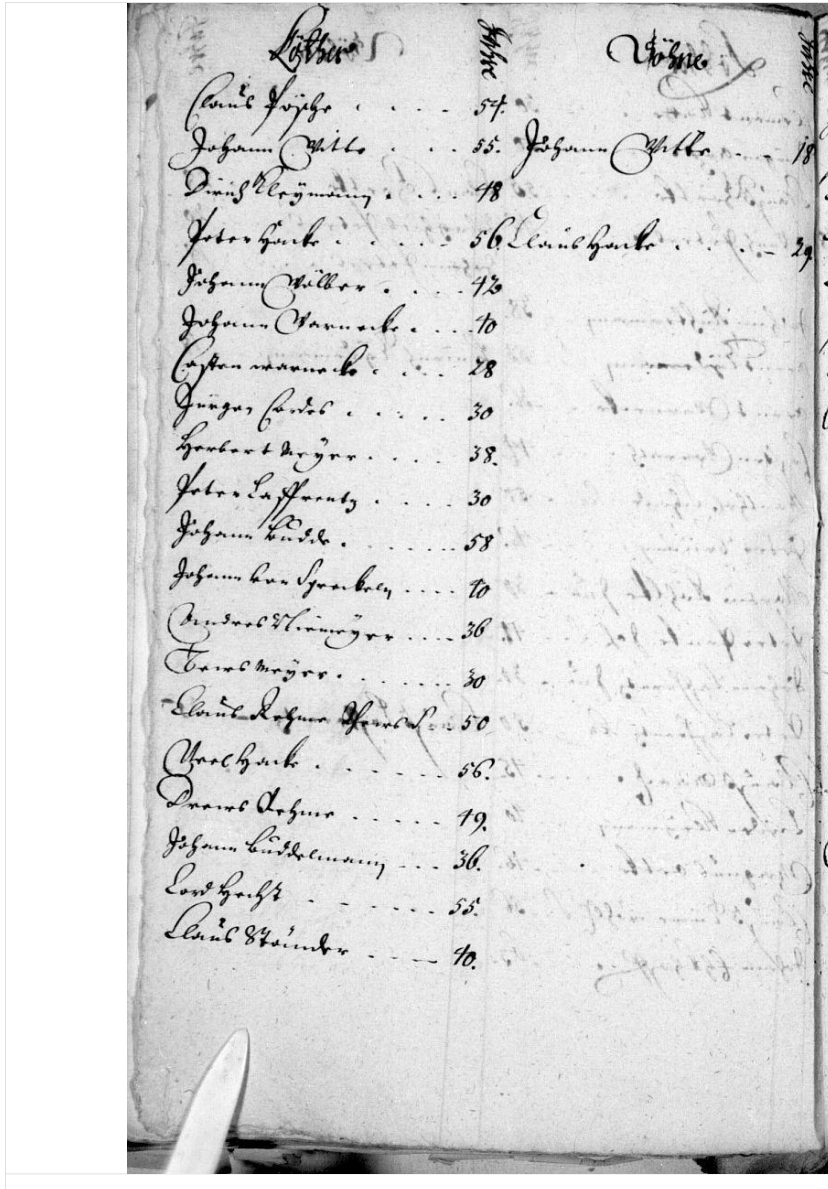 Köther Jahre Söhne Jahre
Claus Pösche . . . . 54.
Johann Witte . . . 55. Johann Witte . . . 18
Dirich Kleÿmann . . . 48
Peter Hacke . . . . . 56. Claus Hacke . . . . 29.
Johann Wölber . . . . 42
Johann Warnecke . . . 40
Casten warnecke . . . 28
Jürgen Cordes . . . . . 30
Herbert Meÿer . . . . 38.
Peter Laffrentz . . . . 30
Johann Budde . . . . . . 58
Johann von Spreckeln . . . . 40
Andres Niemeÿer . . . . 36
Drews Meÿer . . . . . . 30
Claus Rehme 50
Hacke . . . . . . 56.
Drews Rehme . . . . . 49.
Johann Buddelmann . . . 36.
Cord Hechst . . . . . . 55.
Claus Ständer . . . . 40.